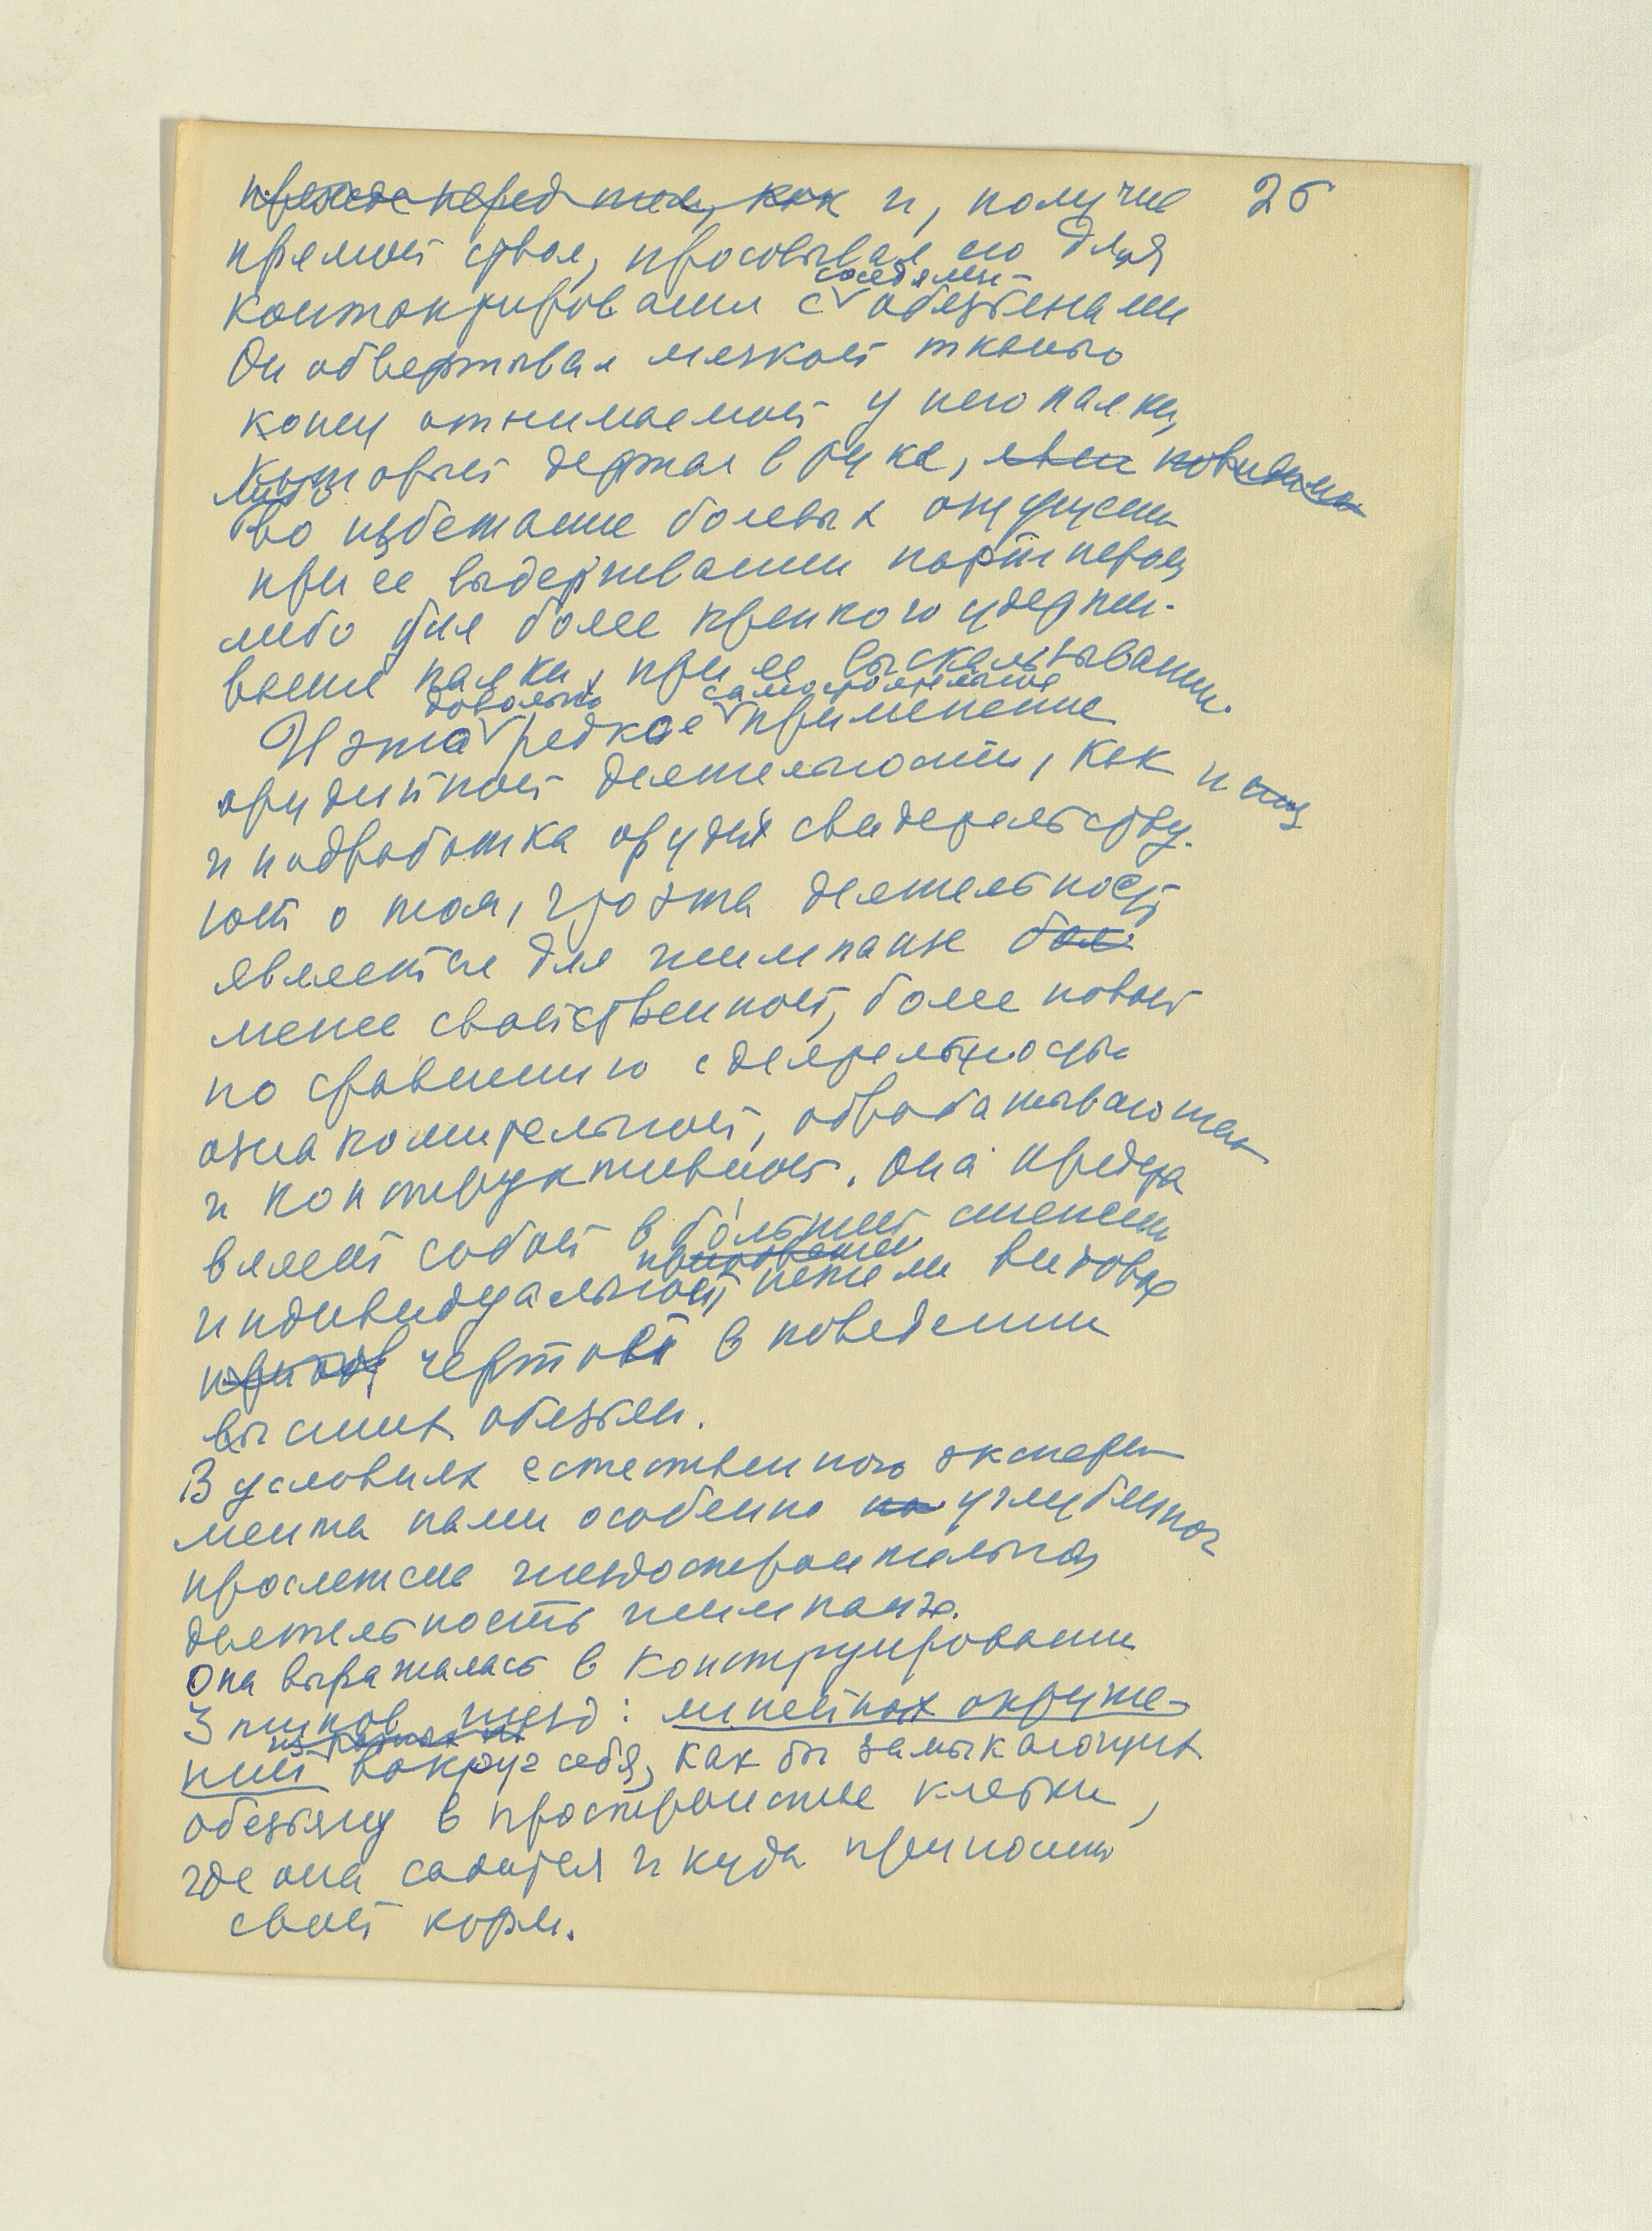 прежде перед тем, как и, получив 25
прямой ствол, просовывал его для
контактирования с соседями обезьянами
Он обвертывал мягкой тканью
конец отнимаемой у него палки,
который держал в руке,
либо во избежание болевых ощущений
при ее выдергивании партнером,
либо для более крепкого удержи-
вания палки, при ее выскальзывании.
И это довольно редкое самостоятельное применение
орудийной деятельности, как и
и подработка орудия свидетельству-
ют о том, что эта деятельность
является для шимпанзе бол.
менее свойственной, более новой
по сравнению с деятельностью
ознакомительной, обрабатывающей
и конструктивной. Она предста
вляет собой в бо́льшей степени
индивидуальной нежели видовой
чертой в поведении
высших обезьян.
В условиях естественного экспери
мента нами особенно на углубленно
прослежена гнездостроительная
деятельность шимпанзе.
Она выражалась в конструировании
3 типов гнезд: линейных окруже-
ний вокруг себя, как бы замыкающих
обезьяну в пространстве клетки,
где она садится и куда приносит
свой корм.